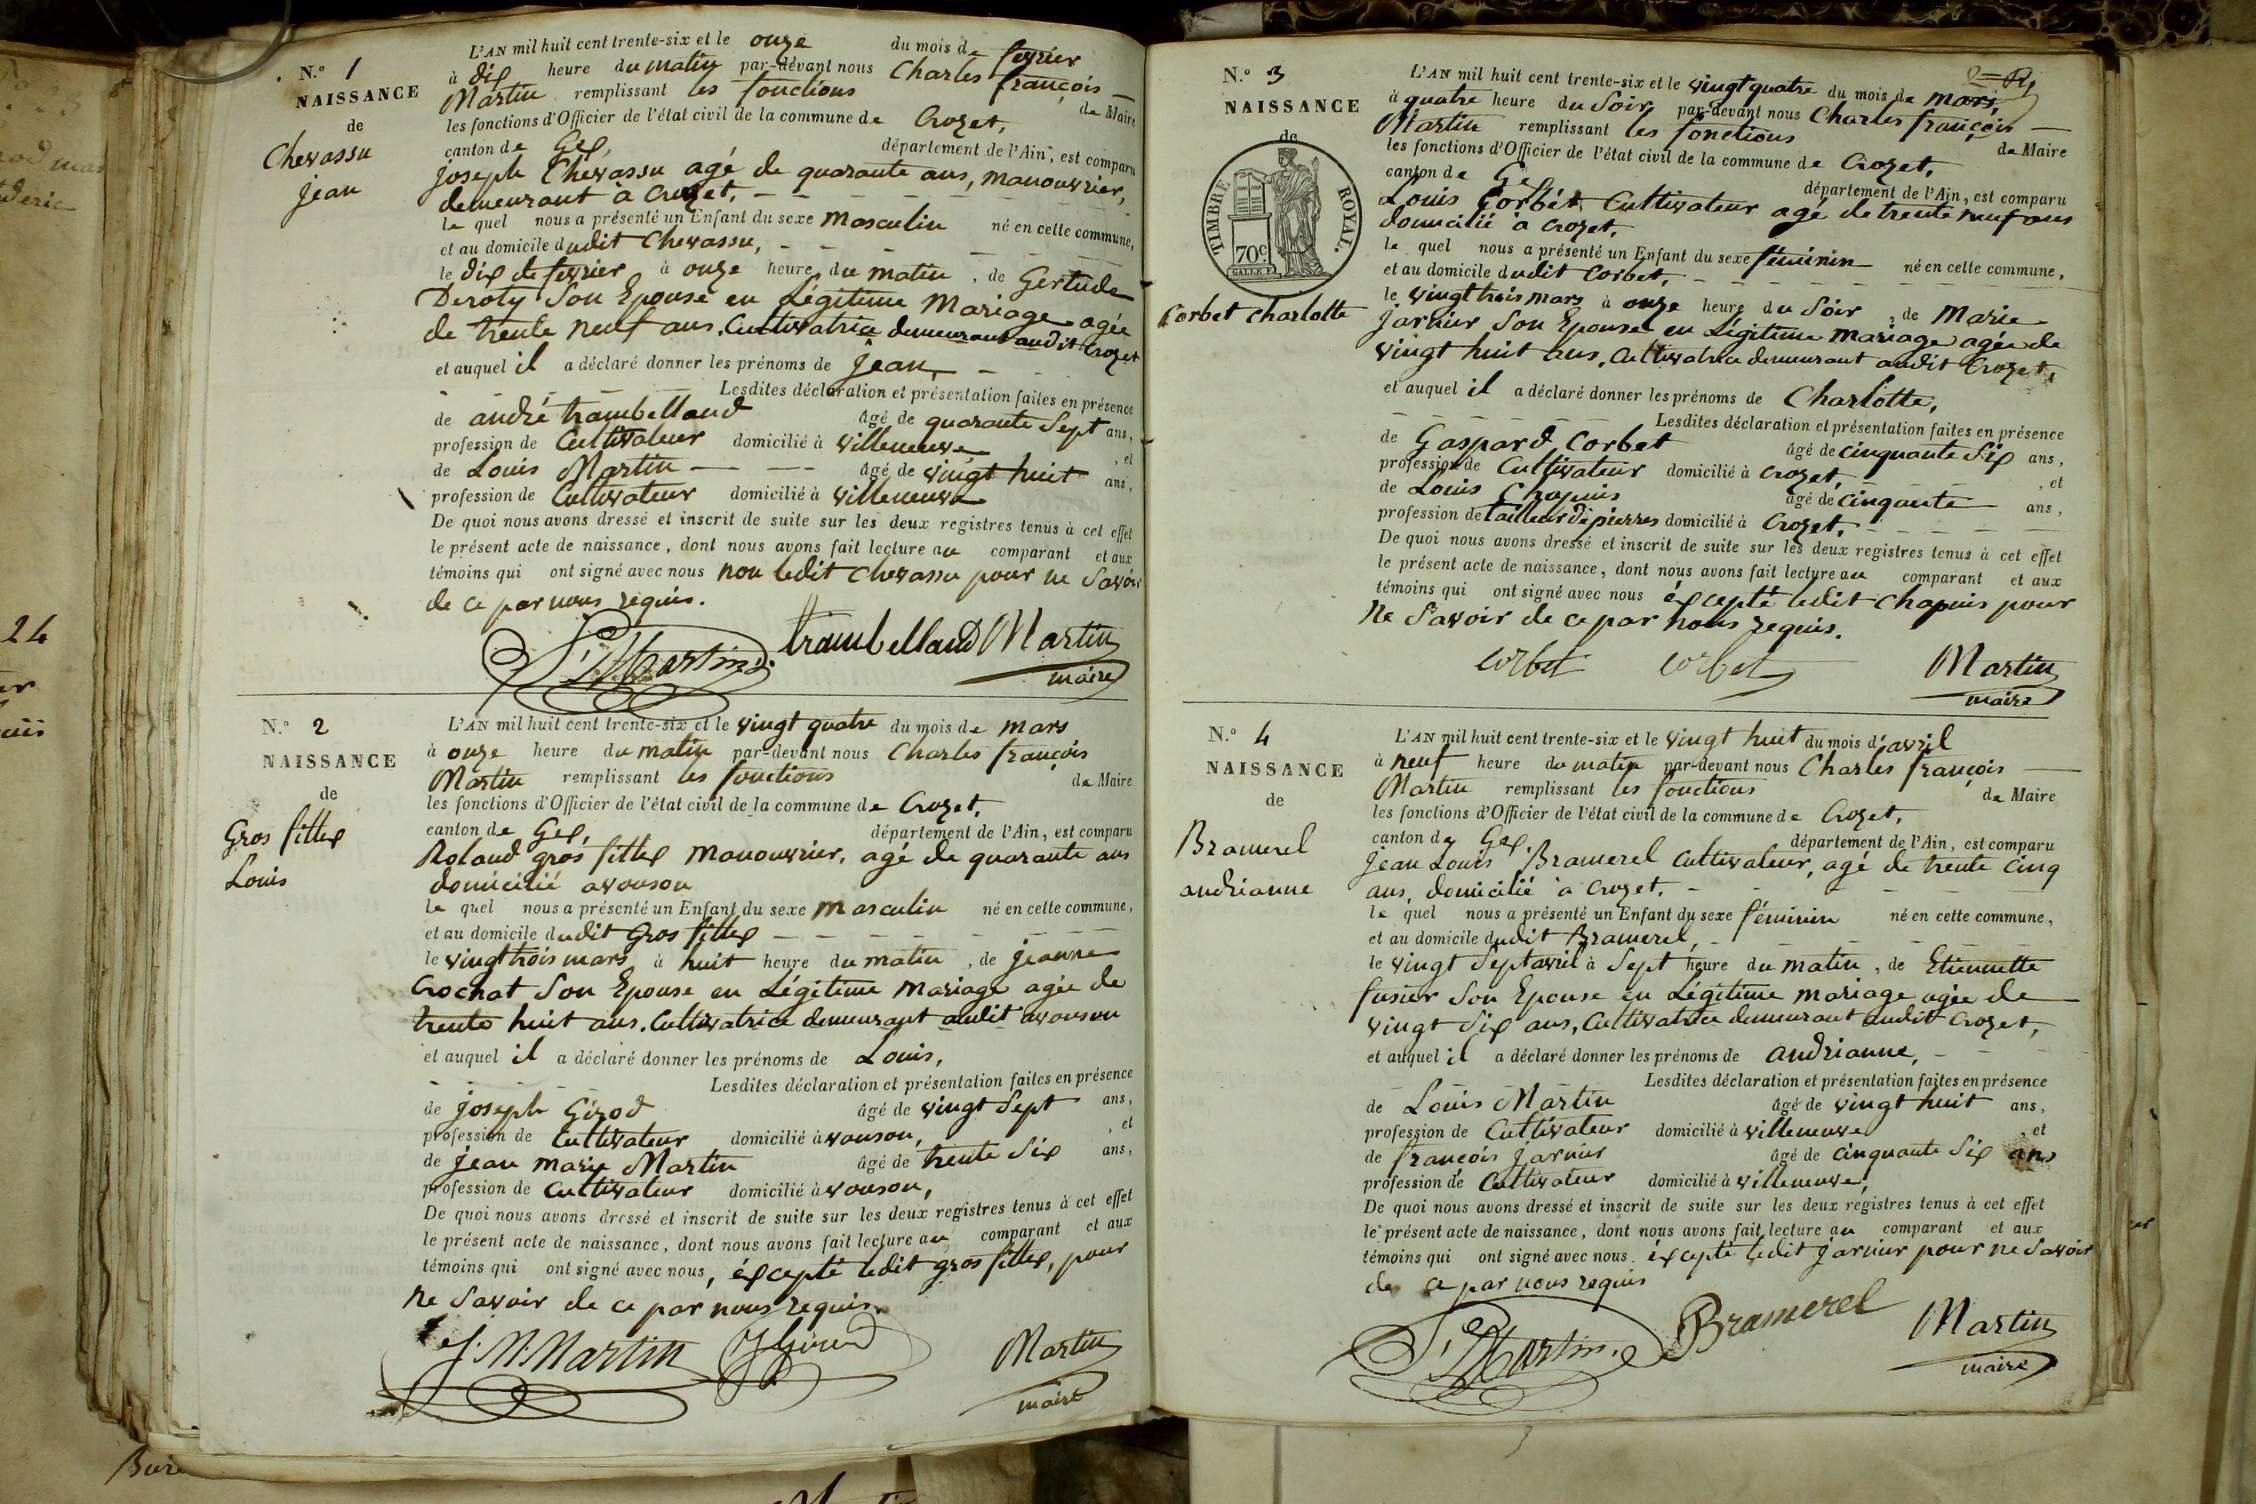 N.o 1
NAISSANCE
de
Chevassu
jean
L'AN mil huit cent trente-six et le onze du mois de fevrier
à dix heure du matin par-devant nous Charles françois
Martin remplissant les fonctions de Maire
les fonctions d'Officier de l'état civil de la commune de Crozet,
canton de Gex, département de l'Ain, est comparu
joseph Chevassu agé de quarante ans, manouvrier,
demeurant à crozet.
le quel nous a présenté un Enfant du sexe masculin né en cette commune,
et au domicile dudit Chevassu,
le dix de fevrier à onze heure du matin, de Gertude
Deroty Son Epouse en Légitime Mariage agée
de trente neuf ans. Cultivatrice demeurant audit Crozet
et auquel il a déclaré donner les prénoms de jean,
Lesdites déclaration et présentation faites en présence
de andré trambelland âgé de quarante Sept ans,
profession de Cultivateur domicilié à villeneuve, et
de Louis Martin âgé de vingt huit ans,
profession de Cultivateur domicilié à villeneuve
De quoi nous avons dressé et inscrit de suite sur les deux registres tenus à cet effet
le présent acte de naissance, dont nous avons fait lecture au comparant et aux
témoins qui ont signé avec nous non ledit chevassu pour ne Savoir
de ce par nous requis.
L. Martin trambelland Martin
maire
N.o 2
NAISSANCE
de
Gros fillex
Louis
L'AN mil huit cent trente-six et le vingt quatre du mois de mars
à onze heure du matin par-devant nous Charles françois
Martin remplissant les fonctions de Maire
les fonctions d'Officier de l'état civil de la commune de Crozet,
canton de Gex, département de l'Ain, est comparu
Roland gros fillex Manouvrier, agé de quarante ans
domicilié avouson
le quel nous a présenté un Enfant du sexe masculin né en cette commune,
et au domicile dudit Gros fillex
le vingt trois mars à huit heure du matin, de jeanne
Crochat Son Epouse en Légitime Mariage agée de
trente huit ans. Cultivatrice demeurant audit avouson
et auquel il a déclaré donner les prénoms de Louis,
Lesdites déclaration et présentation faites en présence
de joseph Girod âgé de vingt Sept ans,
profession de Cultivateur domicilié àvouson, et
de jean marie Martin âgé de trente Six ans,
profession de Cultivateur domicilié àvouson,
De quoi nous avons dressé et inscrit de suite sur les deux registres tenus à cet effet
le présent acte de naissance, dont nous avons fait lecture au comparant et aux
témoins qui ont signé avec nous, éxcepté ledit gros fillex, pour
ne Savoir de ce par nous requis.
J. M. Martin J Girod Martin
maire
N.o 3
NAISSANCE
de
TIMBRE ROYAL.
70c
Corbet charlotte
L'AN mil huit cent trente-six et le vingt quatre du mois de mars,
à quatre heure du Soir par-devant nous Charles françois
Martin remplissant les fonctions de Maire
les fonctions d'Officier de l'état civil de la commune de Crozet,
canton de Gex, département de l'Ain, est comparu
Louis Corbet, Cultivateur agé de trente neuf ans
domicilié à crozet.
le quel nous a présenté un Enfant du sexe féminin né en cette commune,
et au domicile dudit Corbet,
le vingt trois mars à onze heure du Soir, de Marie
jarnier Son Epouse en Légitime mariage agée de
vingt huit ans. Cultivatrice demeurant audit Crozet,
et auquel il a déclaré donner les prénoms de Charlotte,
Lesdites déclaration et présentation faites en présence
de Gaspard Corbet âgé de cinquante Six ans,
profession de Cultivateur domicilié à crozet, et
de Louis Chapuis âgé de cinqante ans,
profession de tailleur de pierres domicilié à Crozet.
De quoi nous avons dressé et inscrit de suite sur les deux registres tenus à cet effet
le présent acte de naissance, dont nous avons fait lecture au comparant et aux
témoins qui ont signé avec nous éxcepté ledit chapuis pour
Ne Savoir de ce par nous requis.
corbet corbet Martin
maire
N.o 4
NAISSANCE
de
Bramerel
andrianne
L'AN mil huit cent trente-six et le vingt huit du mois d'avril
à neuf heure du matin par-devant nous Charles françois
Martin remplissant les fonctions de Maire
les fonctions d'Officier de l'état civil de la commune de Crozet,
canton de Gex, département de l'Ain, est comparu
jean Louis Bramerel cultivateur, agé de trente cinq
ans, domicilié à crozet.
le quel nous a présenté un Enfant du sexe féminin né en cette commune,
et au domicile dudit Bramerel,
le vingt Sept avril à Sept heure du matin, de Etiennette
fusier Son Epouse en Légitime mariage agée de
vingt Six ans, Cultivatrice demeurant audit Crozet,
et auquel il a déclaré donner les prénoms de andrianne,
Lesdites déclaration et présentation faites en présence
de Louis Martin âgé de vingt huit ans,
profession de Cultivateur domicilié à villeneuve et
de françois jarnier âgé de cinquante Six ans
profession de Cultivateur domicilié à villeneuve,
De quoi nous avons dressé et inscrit de suite sur les deux registres tenus à cet effet
le présent acte de naissance, dont nous avons fait lecture au comparant et aux
témoins qui ont signé avec nous éxcepté ledit jarnier pour ne Savoir
de ce par nous requis
L. Martin Bramerel Martin
maire